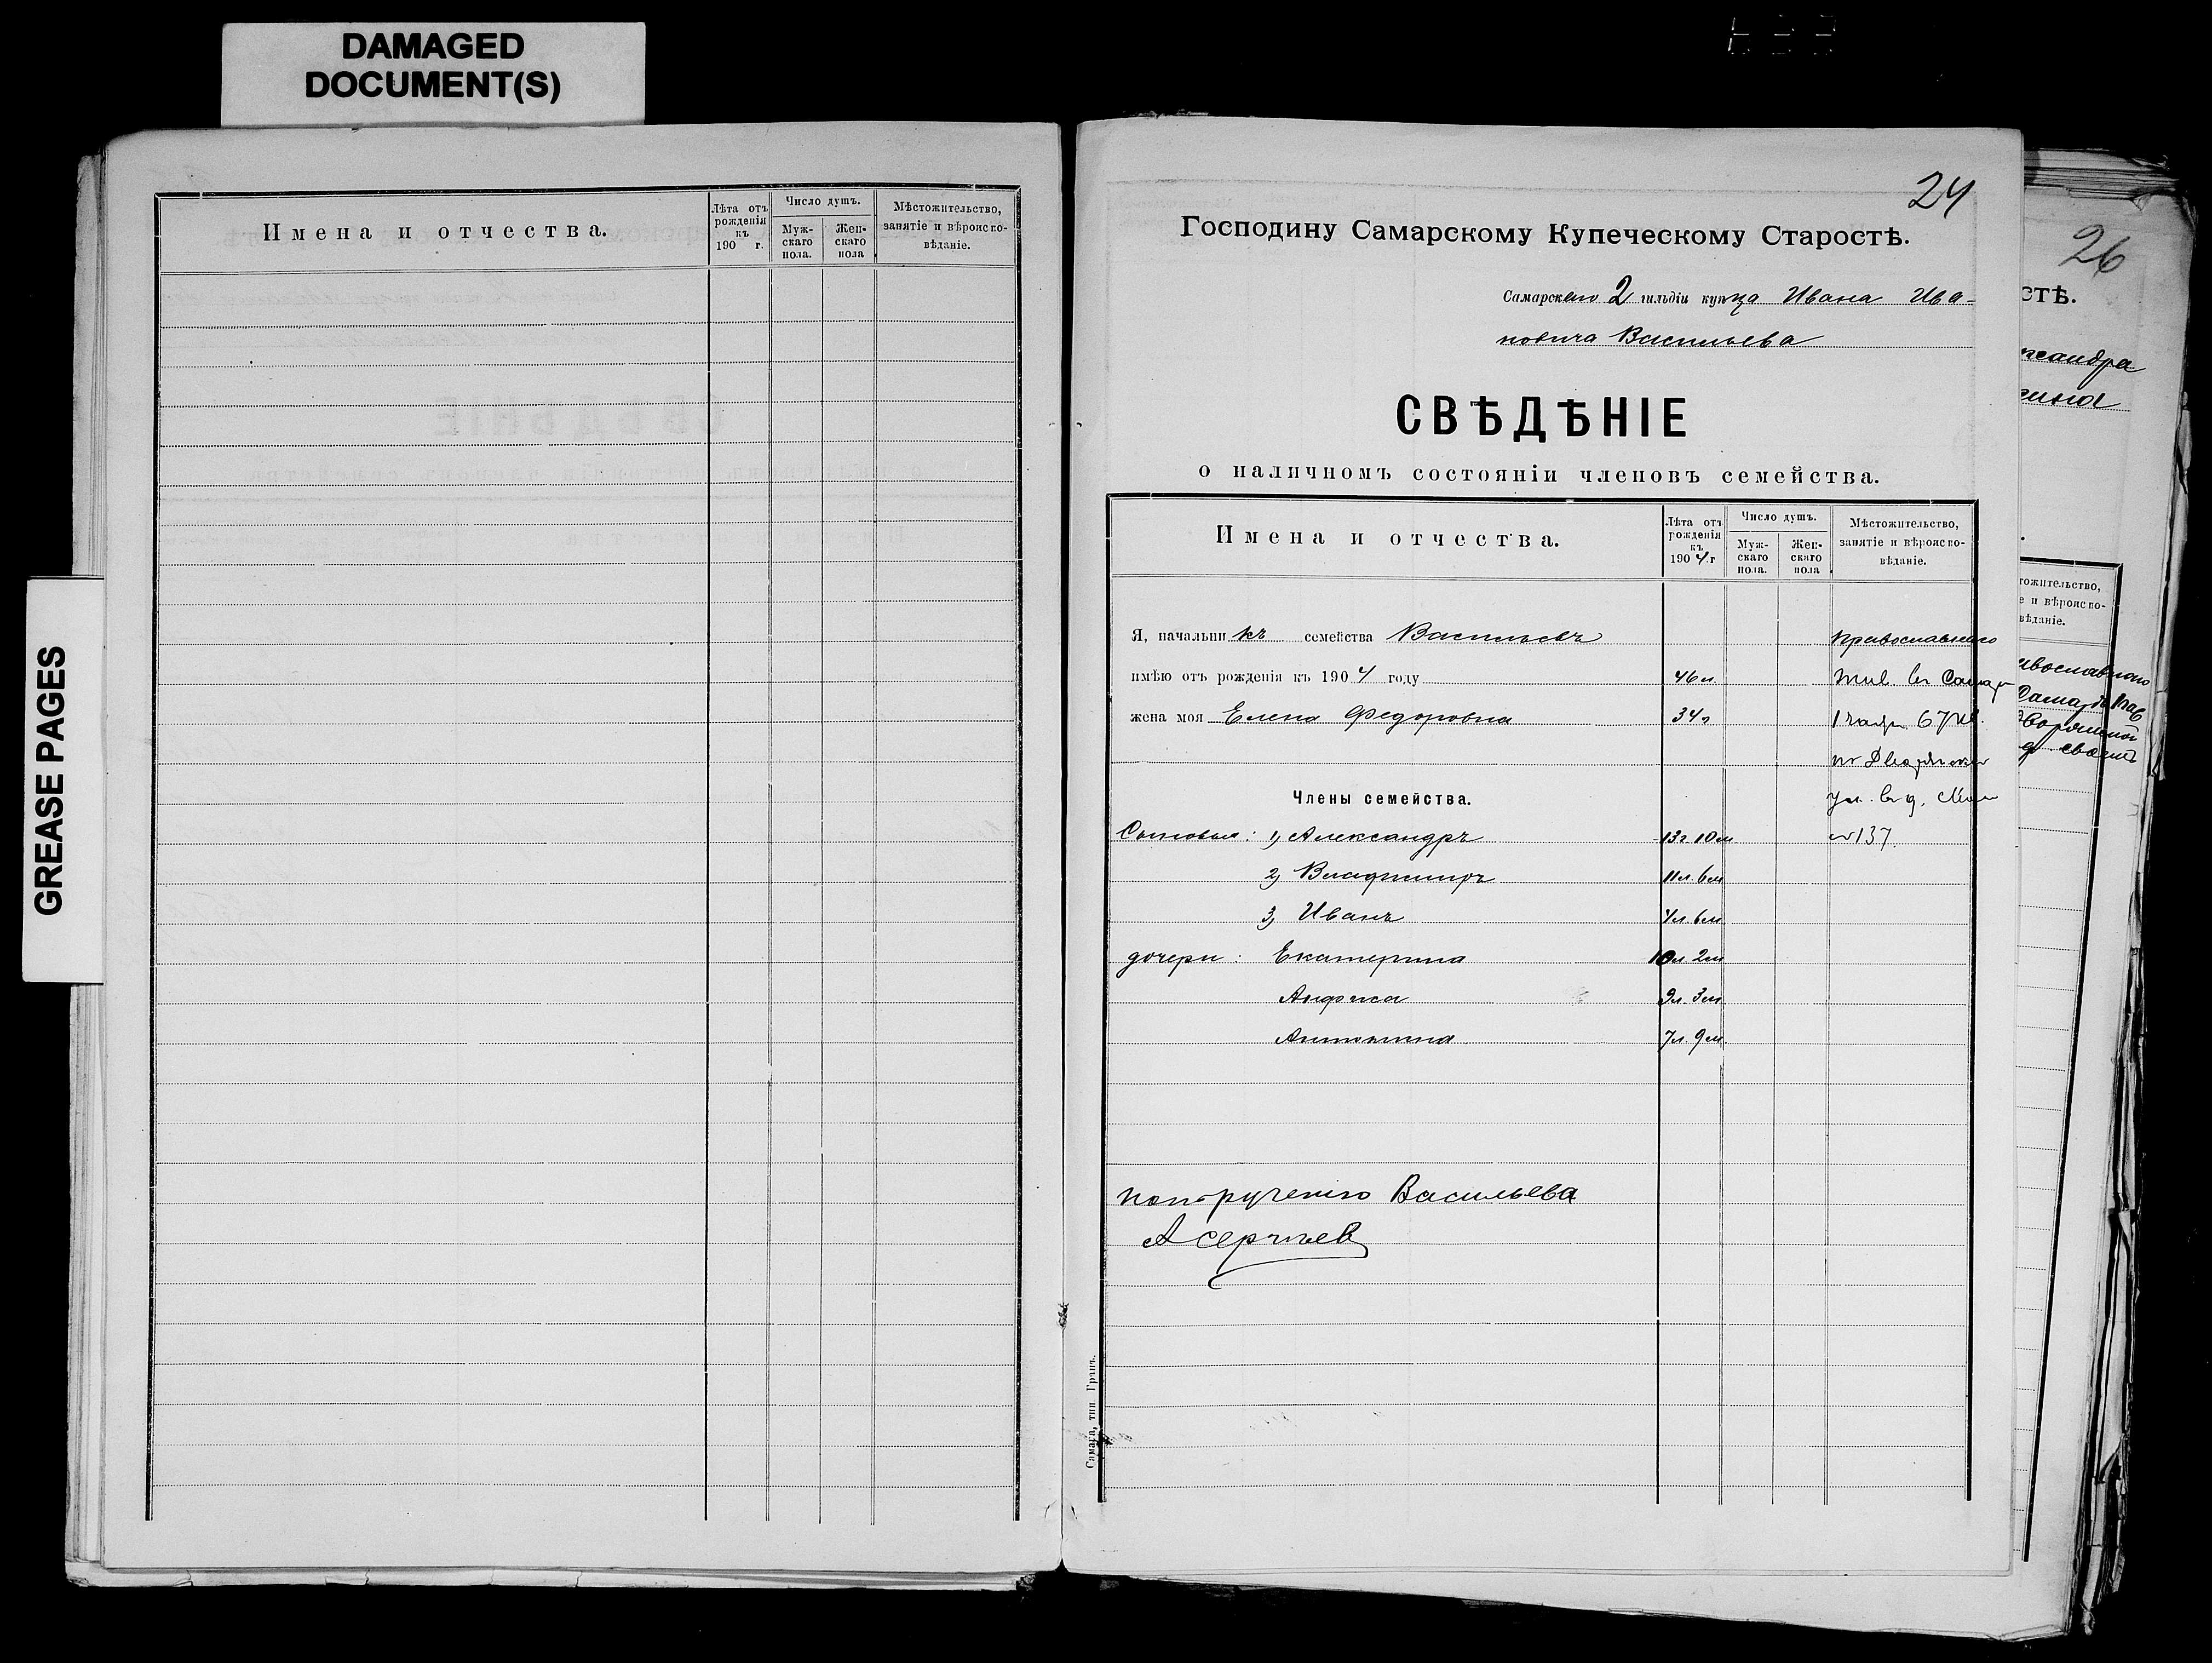 DAMAGED
DOCUMENT(S)
GREASE PAGES
Имена и отчества.
Лѣта отъ рожденія къ 190 г.
Число душъ.
Муж-скаго пола.
Жен-скаго пола
Мѣстожительство, занятіе и вѣроиспо-вѣданіе.
24
Господину Самарскому Купеческому Старостѣ.
Самарскаго 2 гильдіи купца Ивана Ива-
новича Васильева
СВѢДѢНІЕ
о наличномъ состояніи членовъ семейства.
Имена и отчества.
Лѣта отъ рожденія къ 1904 г
Число душъ.
Муж-скаго пола.
Жен-скаго пола
Мѣстожительство, занятіе и вѣроиспо-вѣданіе.
Я, начальникъ семейства Васильевъ православнаго
имѣю отъ рожденія къ 1904 году 46 л жив въ Самар
жена моя Елена Федоровна 34 г 1 части 67 кв.
по Дворянской
Члены семейства. ул. въ д.
Сыновья: 1, Александръ 13 г 10 м №137.
2, Владимиръ 11 л. 6 м
3, Иванъ 4 л 6 м
дочери: Екатерина 10 л 2 м
Анфиса 9 л. 3 м
Антонина 7 л. 9 м
по порученію Васильева
А Сергѣев
Самара, тип. Гранъ.
26
стѣ.
ксандра
тожительство,
е и вѣроиспо-
вѣданіе.
авославнаго
Самарѣ